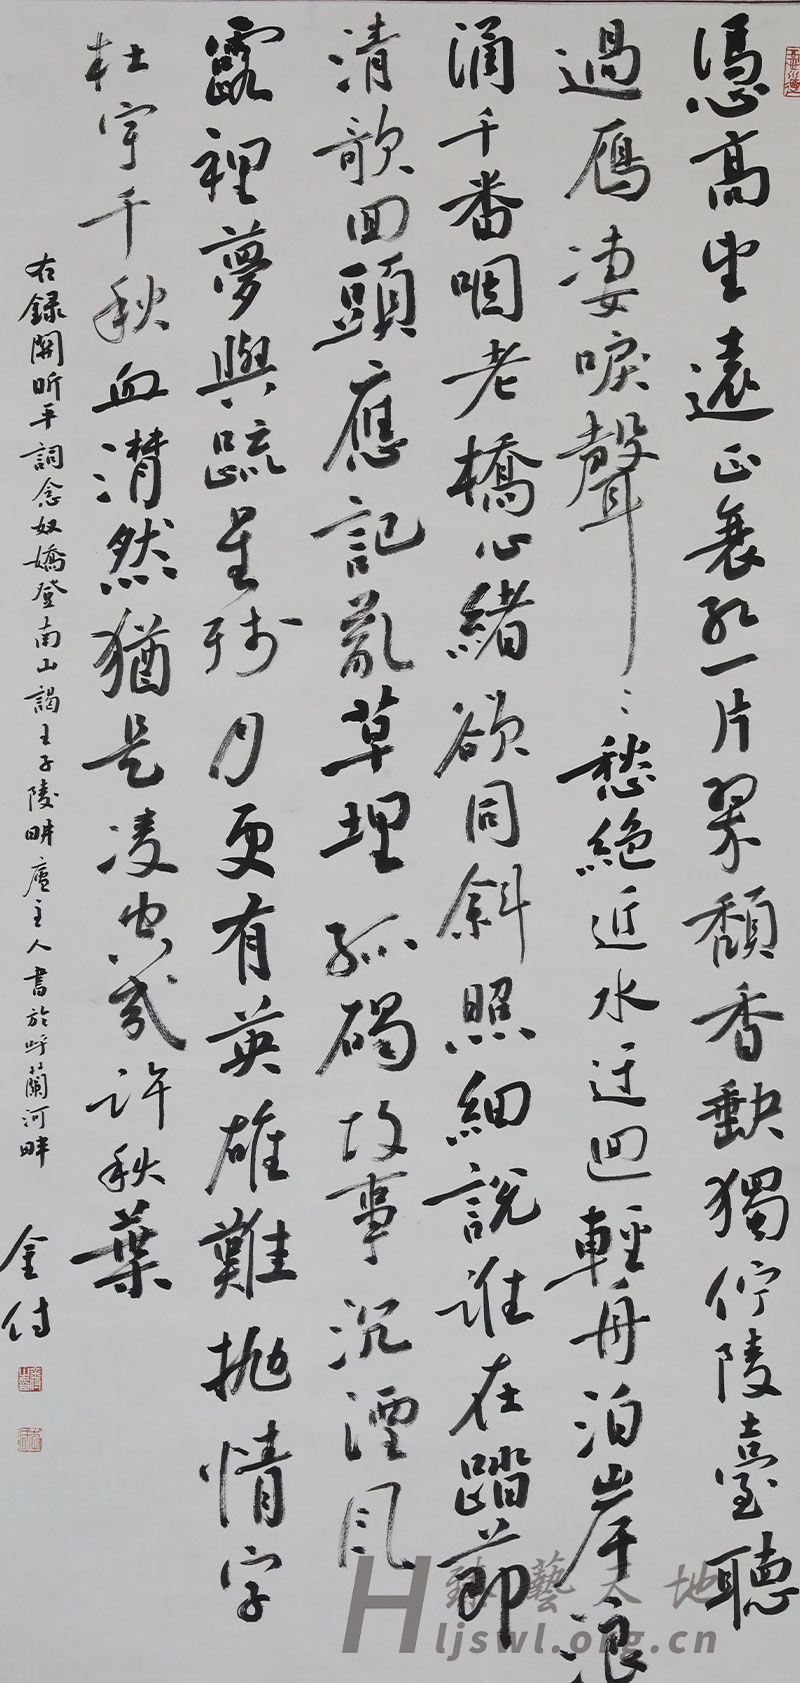 憑高望遠正衰紅一片翠頹香缺獨佇陵臺聽
過雁淒唳聲〻愁絕近水迂迴輕舟泊岸浪
涌千番咽老橋心緒欲同斜照細說誰在踏節
清歌回頭應記亂草埋孤碣故事沉湮風
露裡夢與疏星殘月更有英雄難拋情字
杜宇千秋血潸然猶是凌空幾許秋葉
右錄關昕平詞念奴嬌登南山謁王子陵畊廬主人書於呼蘭河畔
金付
藝天地
Hljswl.org.cn